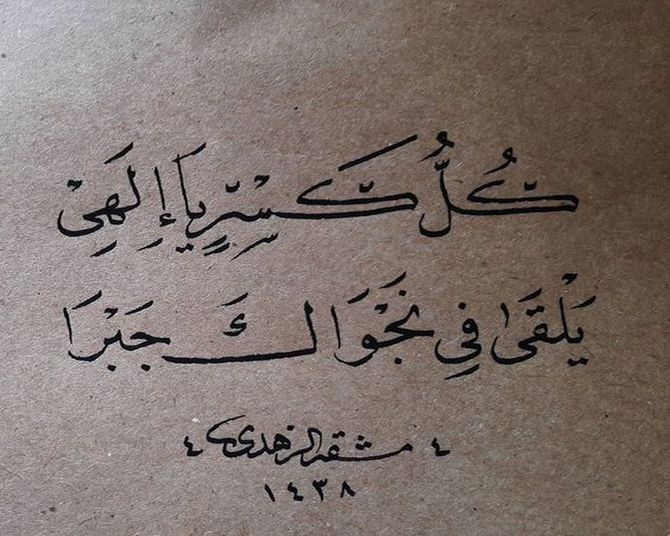 كُلُّ كَسْرٍ يَا إِلَهِيْ
يَلْقَىٰ فِي نَجْوَاكَ جَبْرَا
مشقه الزهدي
١٤٣٨